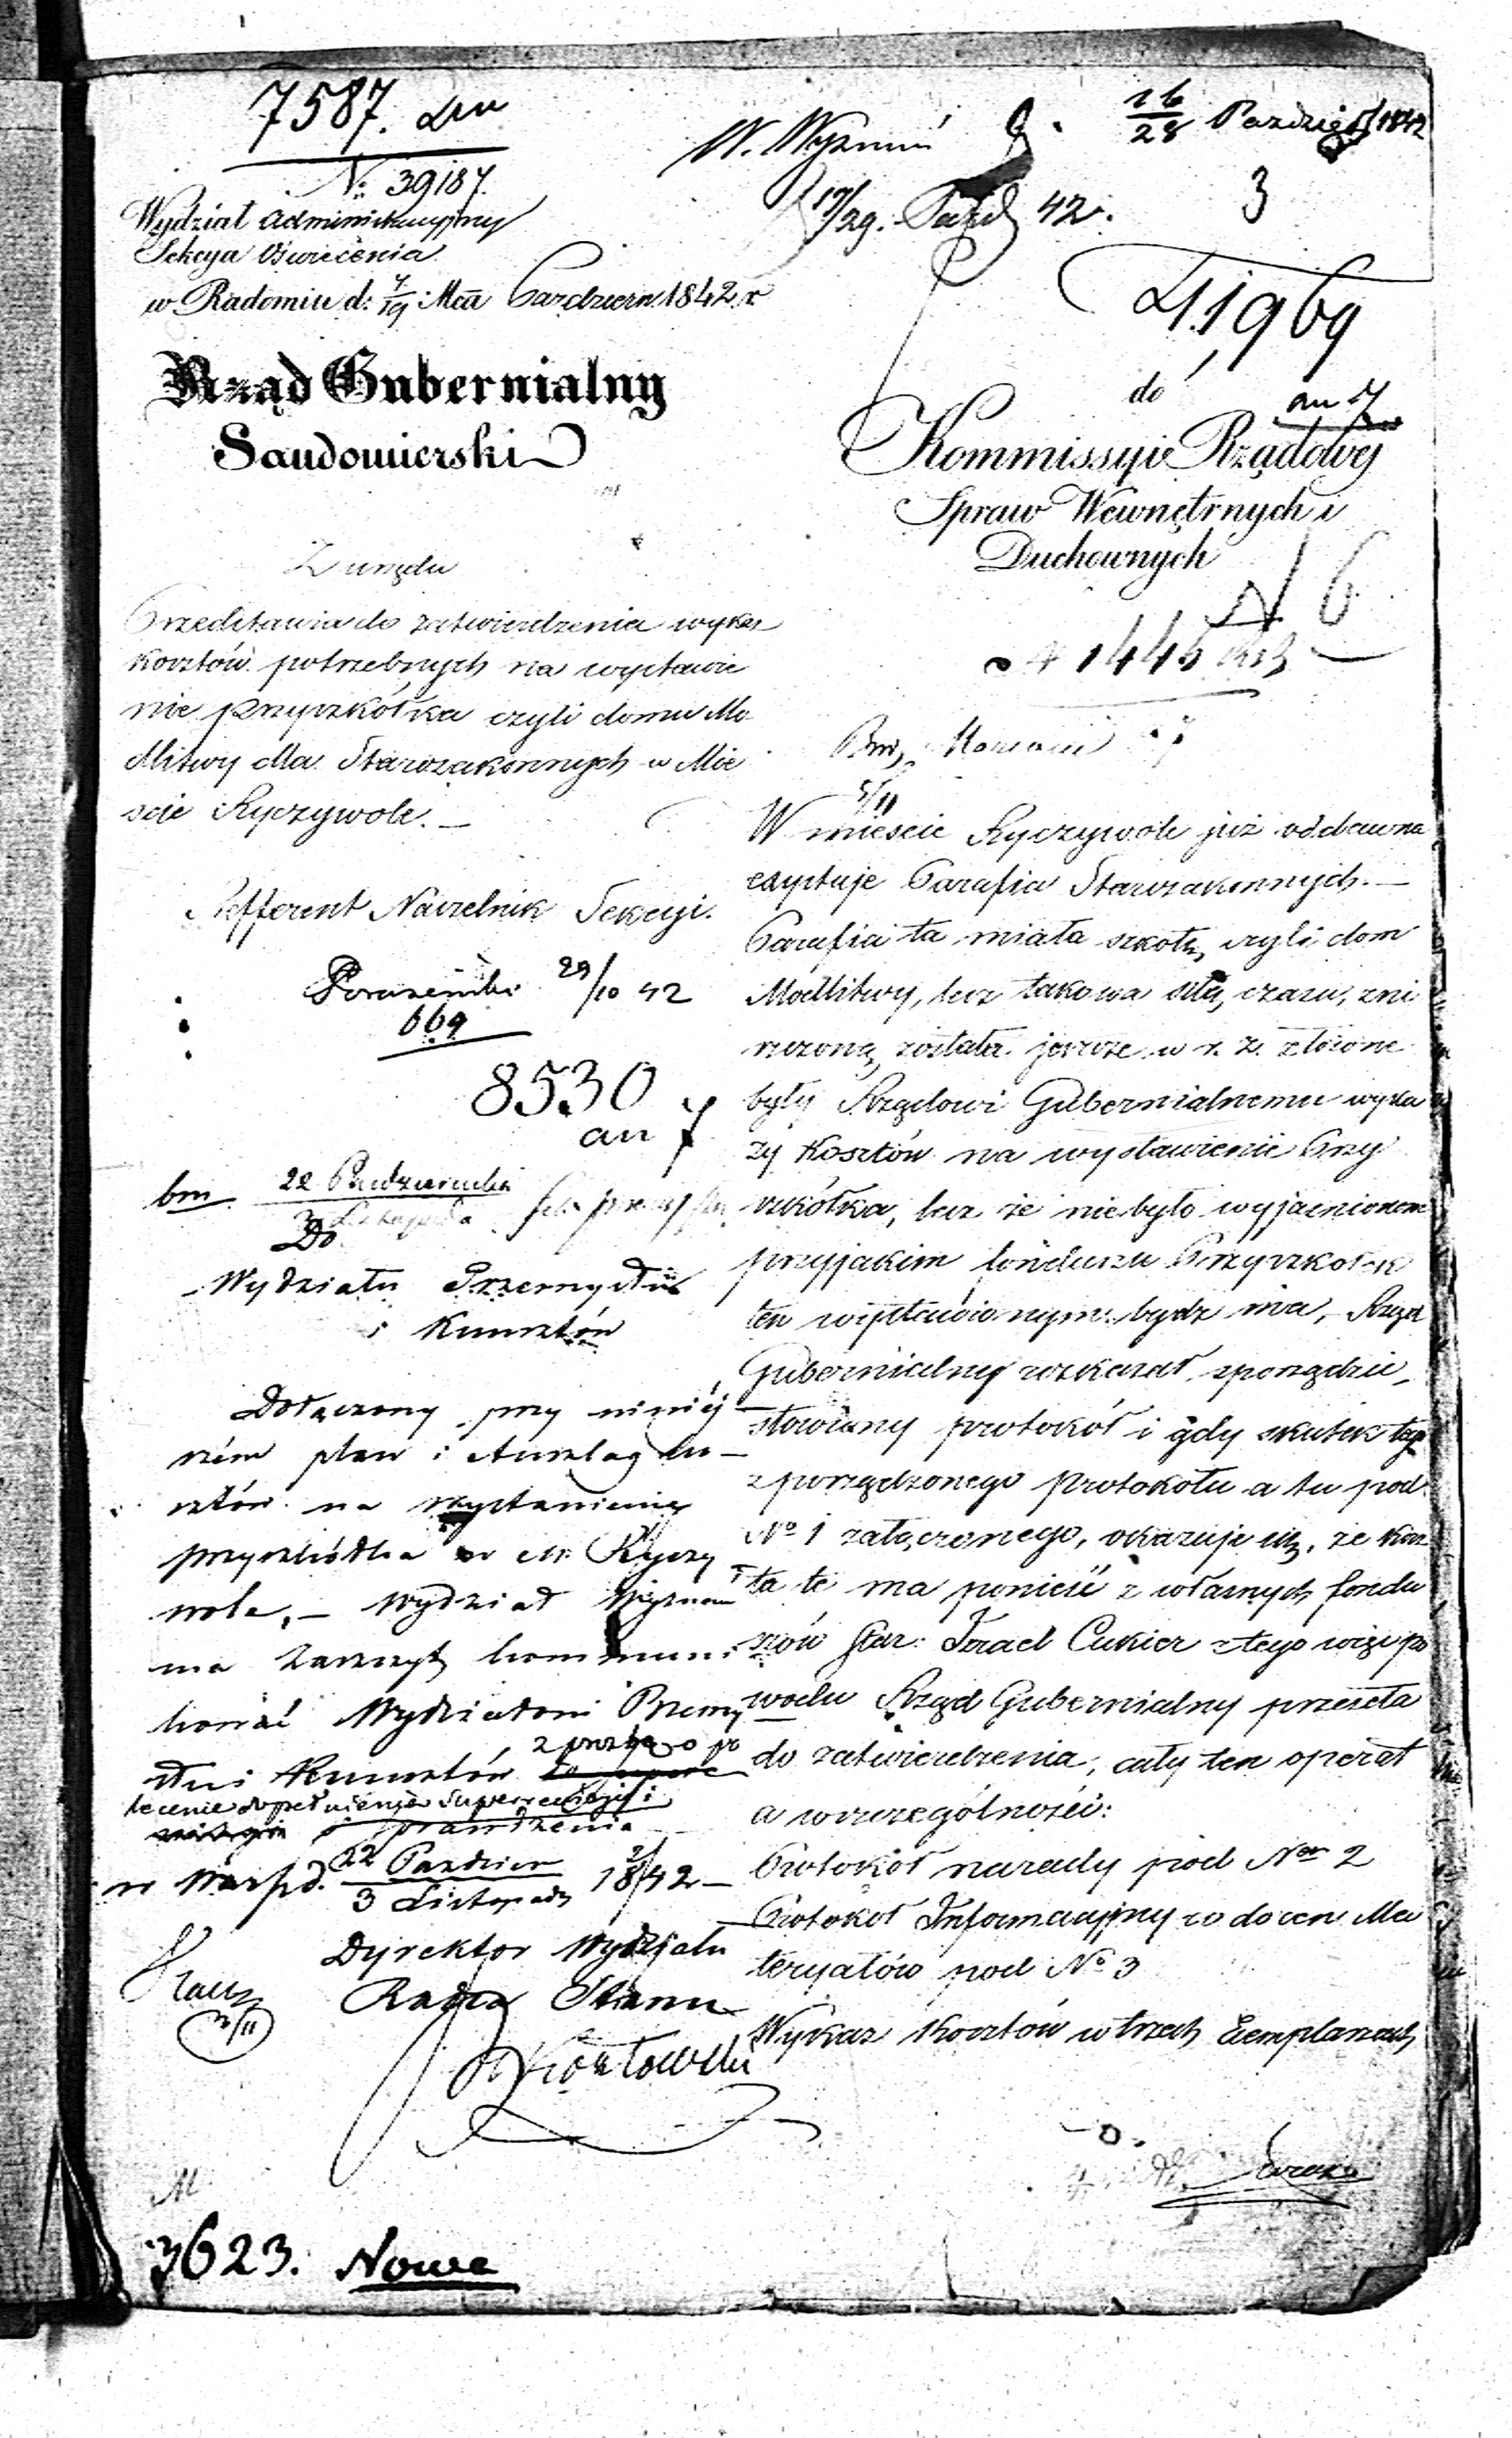 7587.
№ 39187.
Wydział Administracyjny
Sekcya Oświecenia
w Radomiu d: 7/19 Mca Pazdziern 1842 r
Rząd Gubernialny
Sandomierski
Z urzędu
Przedstawia do zatwierdzenia wykaz
kosztów potrzebnych na wystawie
nie przyszkółka czyli domu Mo
dlitwy dla Starozakonnych w Mie
ście Ryczywole. —
Refferent Naczelnik Sekcyi.
29/10 42
669
8530
bm 22 Pazdziernika
3 Listopada
Do
Wydziału Przemysłu
i Kunsztów
Dołączony przy niniéj
szém plan i Anszlag ko-
sztów na wystawienie
przyszkółka w m. Ryczy
wole, — Wydział Wyznań
ma zaszczyt kommuni
kować Wydziałowi Przemy
słu i Kunsztów z prośbą o po
lecenie dopełnienia Superrewizyi i
sprawdzenia
w Warsz d. 22 Pazdzier / 3 Listopada 1842 —
Dyrektor Wydziału
Radca Stanu
3/11
3623. Nowe
W. Wyznań
16/28 Pazdzier 1842
17/29. Pazd 42.
3
41969
do
Kommissyi Rządowéj
Spraw Wewnętrznych i
Duchownych
N 6
1445
5/11
W mieście Ryczywole już oddawna
exystuje Parafia Starozakonnych. —
Parafia ta miała szkołę, czyli dom
Modlitwy, lecz takowa siłą czasu, zni
szczoną została. jeszcze w r. z. złożone
były Rządowi Gubernialnemu wyka
zy kosztów na wystawienie Przy
szkółka, lecz że nie było wyjaśnionem
przy jakim funduszu Przyszkółek
ten wystawionym bydz ma, Rząd
Gubernialny rozkazał sporządzić
stosowny protokół i gdy skutek tego
sporządzonego protokołu a tu pod
№ 1 załączonego, okazuje się, że kosz
ta te ma ponieść z własnych fundu
szów Star: Izrael Cukier z tego więc po
wodu Rząd Gubernialny przeseła
do zatwierdzenia, cały ten operat
a w szczególności:
Protokół narady pod Nem 2
Protokół Informacyjny co do cen Ma
teryałów pod № 3
Wykaz kosztów w trzech Exemplarzach